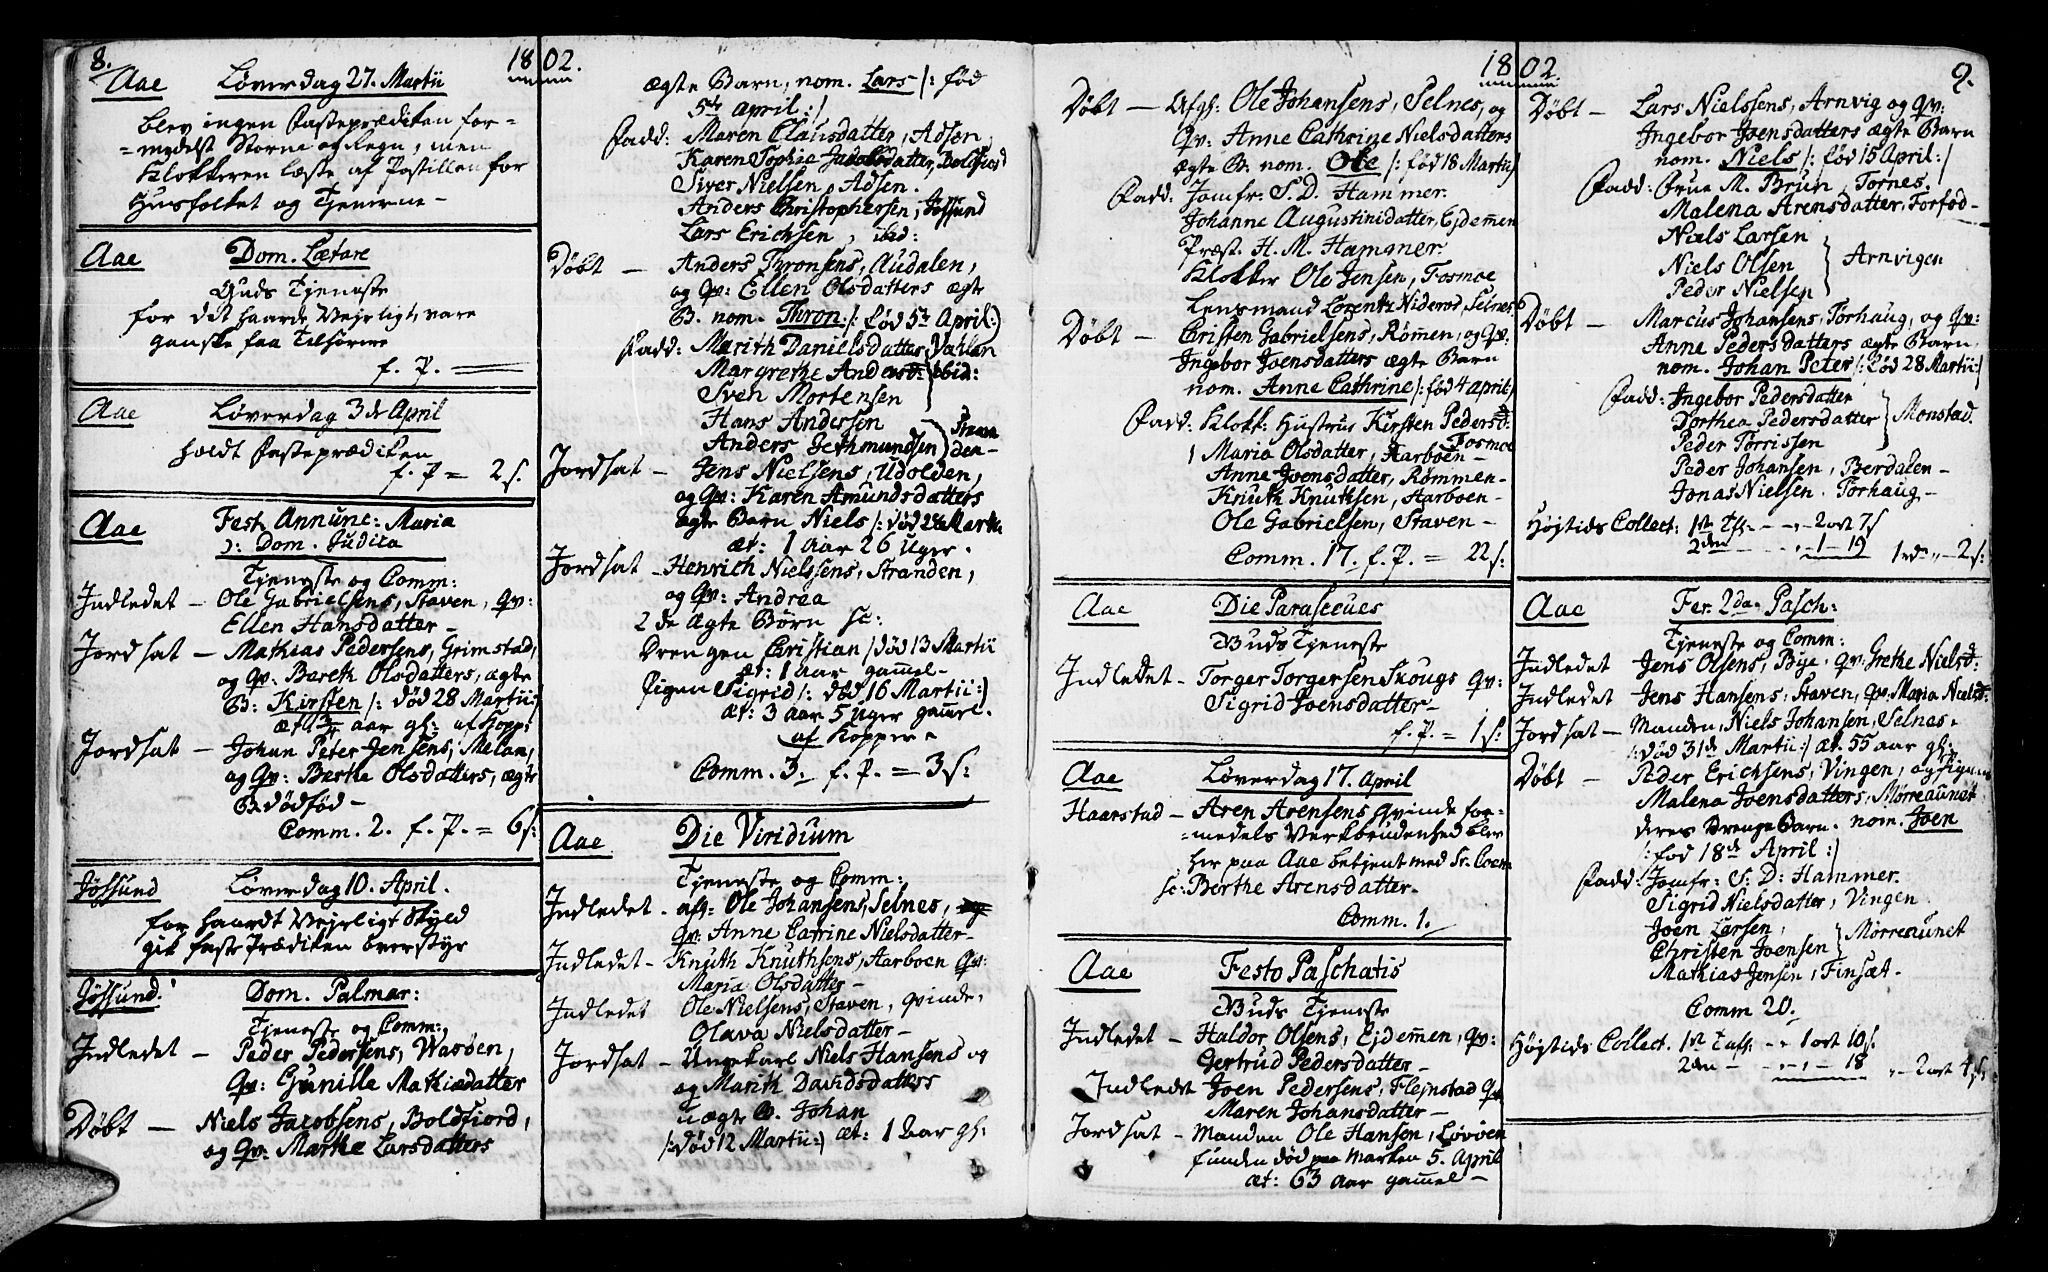 8.
1802.
Aae Løverdag 27. Martii
blev ingen Fasteprædiken for-
=medelst Storm og Regn, men
Klokkeren læste af Postillen for
Husfolket og Tjenerne -
Aae Dom. Lætare
Guds Tjeneste
for det haarde Vejrligt, vare
ganske faa Tilhørere
f. P. =
Aae Løverdag 3de April
holdt Fasteprædiken
f. P = 2 s.
Aae Fest. Annunc: Maria
ɔ: Dom. Judica
Tjeneste og Comm:
Indledet - Ole Gabrielsens, Staven, Qv:
Ellen Hansdatter -
Jordsat - Mathias Pedersens, Grimstad,
og Qv: Bereth Olsdatters, ægte
B: Kirsten /: død 28 Martii:/
æt: 3/4 aar gl: af Kopp:
Jordsat - Johan Peter Jensens, Melan,
og Qv: Berthe Olsdatters, ægte
B. dødfød -
Comm. 2. f. P. = 6 s:
Jøssund Løverdag 10. April.
for haardt Vejrligt Skyld
gik faste Prædiken overstyr
Jøssund. Dom. Palmar:
Tjeneste og Comm:
Indledet - Peder Pedersens, Warøen,
Qv: Gunille Mathiædatter
Døbt - Niels Jacobsens, Boldfiord,
og Qv: Marthe Larsdatters
ægte Barn, nom. Lars /: fød
5te April:/
Fadd: Maren Clausdatter, Adsen,
Karen Sophie Jacobsdatter, Boldfiord
Siver Nielsen, Adsen.
Anders Christophersen, Jøssund
Lars Erichsen, ibid:
Døbt - Anders Thronsens, Audalen,
og Qv: Ellen Olsdatters ægte
B. nom. Thron /: fød 5te April:/
Fadd: Marith Danielsdatter, Vallen
Margrethe Andersd: ibid:
Sven Mortensen
Hans Andersen
Anders Gethmundsen
Jordsat - Jens Nielsens, Udolden,
og Qv: Karen Amundsdatters
ægte Barn Niels /: død 28 Martii
æt: 1 Aar 26 Uger.
Jordsat - Henrich Nielssens, Stranden,
og Qv: Andrea
2de Ægte Børn sc:
Drengen Christian /død 13 Martii
æt: 1 aar gammel -
Pigen Sigrid /: død 16 Martii:/
æt: 3 aar 5 Uger gammel.
af Kopperne
Comm. 3. f. P. = 3 s:
Aae Die Viridium
Tjeneste og Comm:
Indledet - afg: Ole Johansens, Selnes,
Qv: Anne Catrine Nielsdatter -
Indledet - Knuth Knuthsens, Aarboen Qv:
Maria Olsdatter -
Indledet Ole Nielsens, Staven, Qvinde,
Olava Nielsdatter -
Jordsat - Ungekarl Niels Hansens og
og Marith Davidsdatters
uægte B. Johan
/: død 12 Martii:/ æt: 1 Aar gl:
1802.
9.
Døbt - Afg: Ole Johansens, Selnes, og
Qv: Anne Cathrine Nielsdatters
ægte B. nom. Ole /: fød 18 Martii/
Fadd: Jomfr: S. D. Hammer.
Johanne Augustinidatter, Ejdemen
Præst. H. M. Hammer.
Klokker Ole Jensen, Fosmoe
Lensmand Lorentz Nideros, Selnes
Døbt - Cristen Gabrielsens, Rømmen, og Qv:
Ingebor Joensdatters ægte Barn
nom. Anne Cathrine /: fød 4 april:/
Fadd: Klokk: Hustrue Kirsten Pedersd:
Fosmoe
Maria Olsdatter, Aarboen -
Anne Joensdatter, Rømmen -
Knuth Knuthsen, Aarboen -
Ole Gabrielsen, Staven -
Comm. 17. f. P. = 22 s:
Aae Die Parasceues
Guds Tjeneste
Indledet - Torger Torgersen Skougs Qv:
Sigrid Joensdatter -
f. P. = 1 s:
Aae Løverdag 17. April
Haarstad - Aren Arensens Qvinde for-
=medels Værkbrudenhed blev
her paa Aae betjent med Sr. Coen:
sc: Berthe Arensdatter -
Comm. 1.
Aae Festo Paschatis
Guds Tjeneste
Indledet - Haldor Olsens, Ejdemen, Qv:
Gertrud Pedersdatter -
Indledet Joen Pedersens, Flejnstad Qv
Maren Johansdatter -
Jordsat - Manden Ole Hansen, Løvøen
funden død paa Marken 5. April
æt: 63 aar gammel -
Døbt - Lars Nielssens, Arnvig og Qv:
Ingebor Joensdatters ægte Barn
nom. Niels /: fød 15 April:/
Fadd: Frue M. Brun, Tornes.
Malena Arensdatter, Forfod -
Niels Larsen
Niels Olsen } Arnvigen
Peder Nielsen
Døbt - Marcus Johansens, Torhaug, og Qv:
Anne Pedersdatters ægte Barn,
nom. Johan Peter /: fød 28 Martii:/
Fadd: Ingebor Pedersdatter
Dorthea Pedersdatter } Monstad.
Peder Torrissen
Peder Johansen, Berdalen -
Jonas Nielsen. Torhaug -
Højtids Collect: 1ste Tf: - - „ - 2 ort 7 s
2den - - „ - 1 - 19 1 rd „ - 2 s:
Aae Fer. 2da. Pasch:
Tjeneste og Comm:
Indledet Jens Olsens, Bye, Qv: Grethe Nielsd:
Indledet Jens Hansens, Staven, Qv: Maria Nielsd:
Jordsat - Manden, Niels Johansen, Selnes.
/: død 31te Martii:/ æt. 55 aar gl:
Døbt - Peder Erichsens, Vingen, og Pigens
Malena Joensdatters, Mørreaunet
deres Drenge Barn. nom. Joen
/: fød 18de April:/
Fadd: Jomfr: S. D: Hammer.
Sigrid Nielsdatter, Vingen.
Joen Larsen,
Christen Joensen } Mørreaunet
Mathias Jensen, Finsæt -
Comm 20.
Højtids Collect. 1ste Taft - „ - 1 ort 10 s.
2den - - „ - „ - 18 „ - 2 ort 4 s: